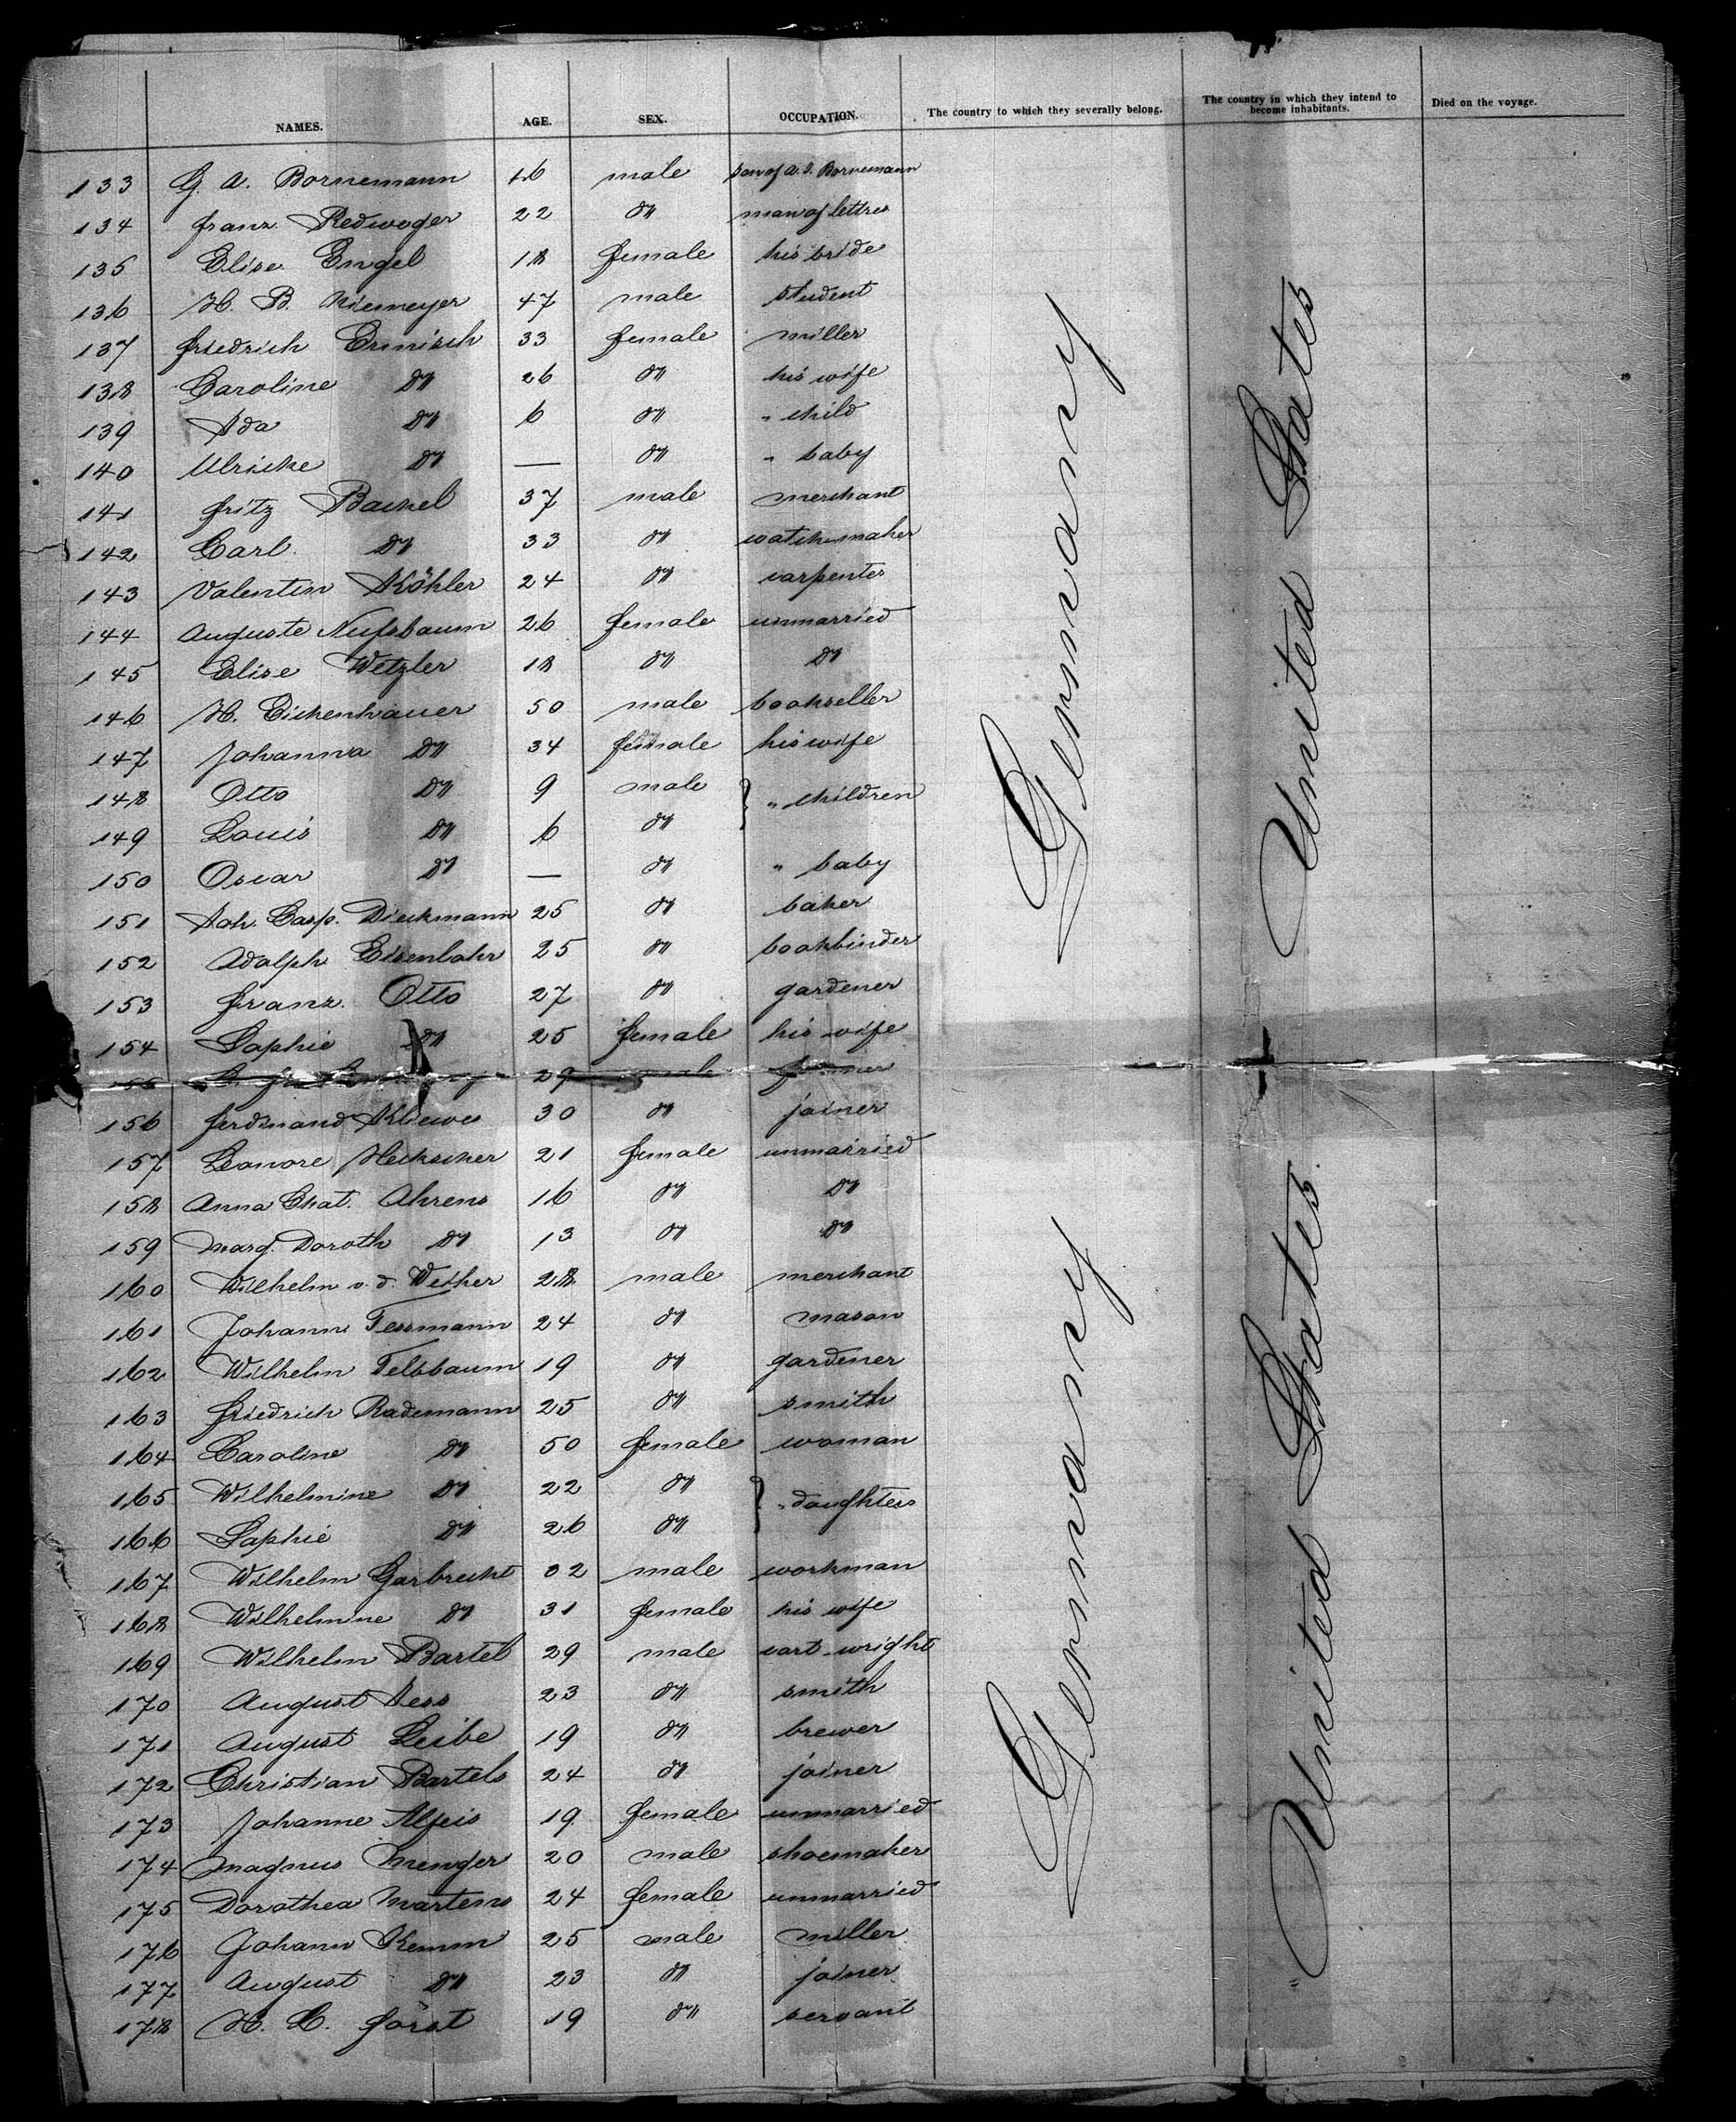 NAMES. AGE. SEX. OCCUPATION. The country to which they severally belong. The country in which they intend to become inhabitants. Died on the voyage.
133 G. A. Bornemann 16 male son of A. F. Bornemann
134 Franz Redwoger 22 do man of lettres
135 Elise Engel 18 female his bride
136 H. B. Niemeyer 47 male student
137 Friedrich Ermisch 33 female miller
138 Caroline do 26 do his wife
139 Ida do 6 do " child
140 Ulricke do — do " baby
141 Fritz Backel 37 male merchant
142 Carl do 33 do watchmaker
143 Valentin Köhler 24 do carpenter
144 Auguste Nußbaum 26 female unmarried
145 Elise Wetzler 18 do do
146 H. Eichenhauer 50 male bookseller
147 Johanna do 34 female his wife
148 Otto do 9 male " children
149 Louis do 6 do
150 Oscar do — do " baby
151 Joh. Casp. Dieckmann 25 do baker
152 Adolph Eisenlohr 25 do bookbinder
153 Franz Otto 27 do gardener
154 Sophie do 25 female his wife
29
156 Ferdinand Kliewes 30 do joiner
157 Leonore Heckscher 21 female unmarried
158 Anna Chat. Ahrens 16 do do
159 Marg. Doroth do 13 do do
160 Wilhelm v. d. Weiher 28 male merchant
161 Johann Tessmann 24 do mason
162 Wilhelm Felsbaum 19 do gardener
163 Friedrich Rademann 25 do smith
164 Caroline do 50 female woman
165 Wilhelmine do 22 do " daughters
166 Sophie do 26 do
167 Wilhelm Garbrecht 32 male workman
168 Wilhelmine do 31 female his wife
169 Wilhelm Bartel 29 male cart-wright
170 August Jess 23 do smith
171 August Leibe 19 do brewer
172 Christian Bartels 24 do joiner
173 Johanne Alfeis 19 female unmarried
174 Magnus Menger 20 male shoemaker
175 Dorothea Martens 24 female unmarried
176 Johann Kemm 25 male miller
177 August do 23 do joiner
178 H. C. Först 19 do servant
Germany
United States
Germany
United States